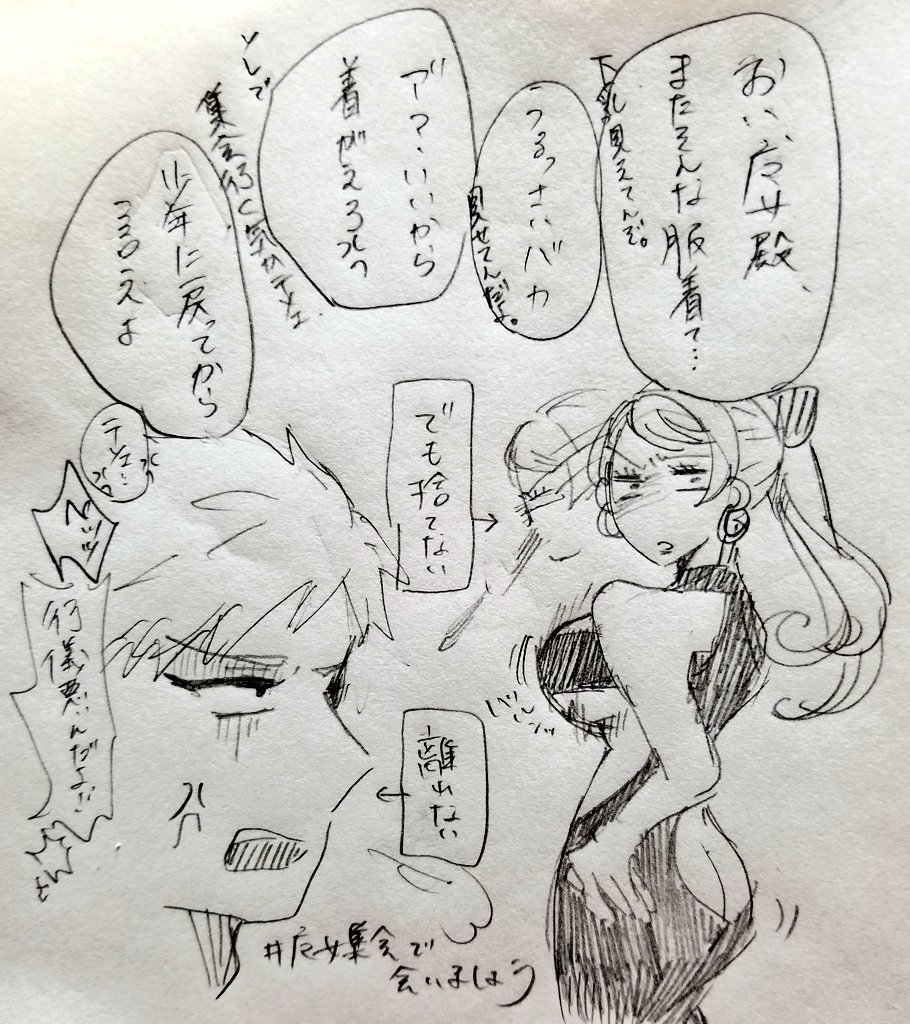 おい、戻女殿、
またそんな服着て…
下乳見えてんぞ。
うるっさいバカ
見せてんだよ。
いいから
着がえろ
ソレで
集会行く気かテメェ
少年に戻ってから
言えよ
テメェ…
でも捨てない
離れない
行儀悪いんだよ!!
#戻女集会で
会いましょう